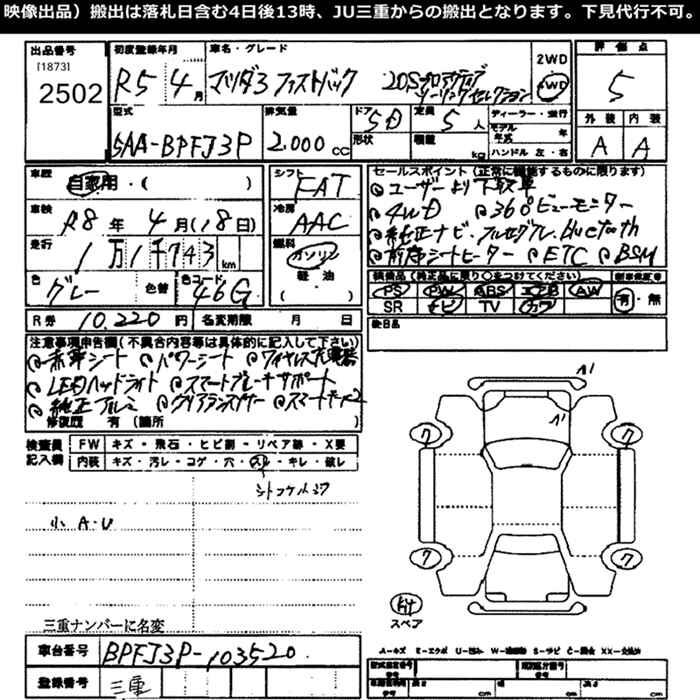 映像出品）搬出は落札日含む4日後13時、JU三重からの搬出となります。下見代行不可。
出品番号
[1873]
2502
初度登録年月
R5年 4月
車名・グレード
マツダ3 ファストバック 20Sプロアクティブ
ツーリングセレクション
2WD
4WD
評価点
5
外装 内装
A A
型式
5AA-BPFJ3P
排気量
2.000 cc
ドア 5D
形状
定員 5人
積載 kg
ディーラー・並行
モデル年式 年
ハンドル 左・右
車歴
自家用・( )
車検
R8年 4月(18日)
走行
1万1千743 km
色
グレー
色替
色コード
46G
シフト
FAT
冷房
AAC
燃料
ガソリン
軽・油
( )
セールスポイント(正常に機能するものに限ります)
ユーザーより下取車
4WD 360°ビューモニター
純正ナビ、フルセグTV、bluetooth
前席シートヒーター ETC BSM
装備品(純正品に限り○をつけてください)
PS PW ABS エアB AW
SR ナビ TV
新車保証書
有・無
後日品
R券 10,220円
名変期限 月 日
注意事項申告欄(不具合内容等は具体的に記入して下さい)
赤革シート パワーシート ワイヤレス充電器
LEDヘッドライト スマートブレーキサポート
純正アルミ クリアランスソナー
修復歴 有(箇所 )
検査員
記入欄
FW キズ・飛石・ヒビ割・リペア跡・X要
内装 キズ・汚レ・コゲ・穴・スレ・キレ・破レ
小A・U
A1
A1
7
7
7
7
スペア
三重ナンバーに名変
車台番号
BPFJ3P-103520
登録番号
三重
A-キズ E-エクボ U-凹ミ W-補修跡 S-サビ C-腐食 XX-交換済
型式指定番号
類別区分番号
長さ cm
幅 cm
高さ cm